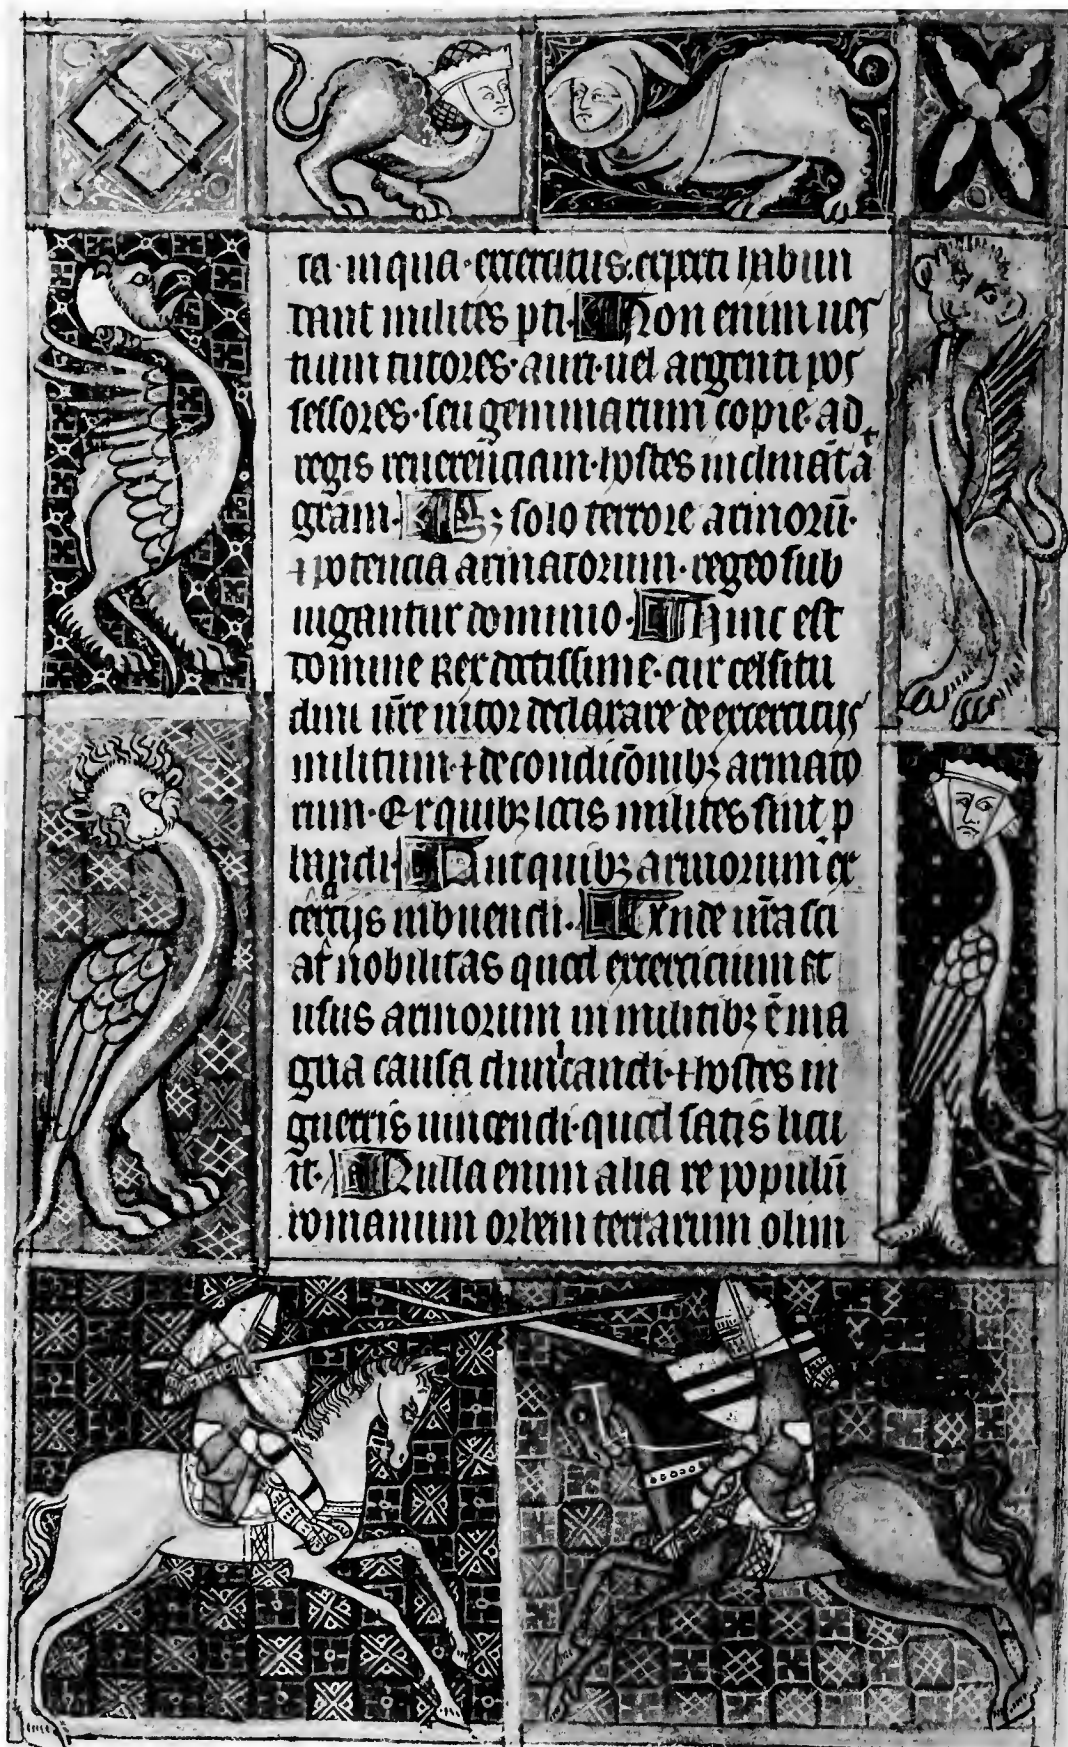 ta · in qua · excercitus · experti habun
dant milites pti · Non enim ues
tium nitores · auri · uel argenti pos
sessores · seu gemmarum copie · ad
regis reuerenciam · hostes inclināt a
grām · Sꝫ solo terrore armorū ·
⁊ potencia armatorum · regeo sub
iugantur dominio · Hinc est
domine Rex · cur celsitu
dini ūre nitor declarare de excercicijs
militum · ⁊ de condicōnibꝫ armato
rum · Ex quibꝫ locis milites sint p
bandi · Aut quibꝫ armorum ex
ercicijs inbuendi · Unde ūra sci
at nobilitas quod excercicium et
usus armorum in militibꝫ ē ma
gna causa dimicandi · ⁊ hostes in
guerris uincendi · quod satis licu
it · Nulla enim alia re populū
romanum orbem terrarum olim